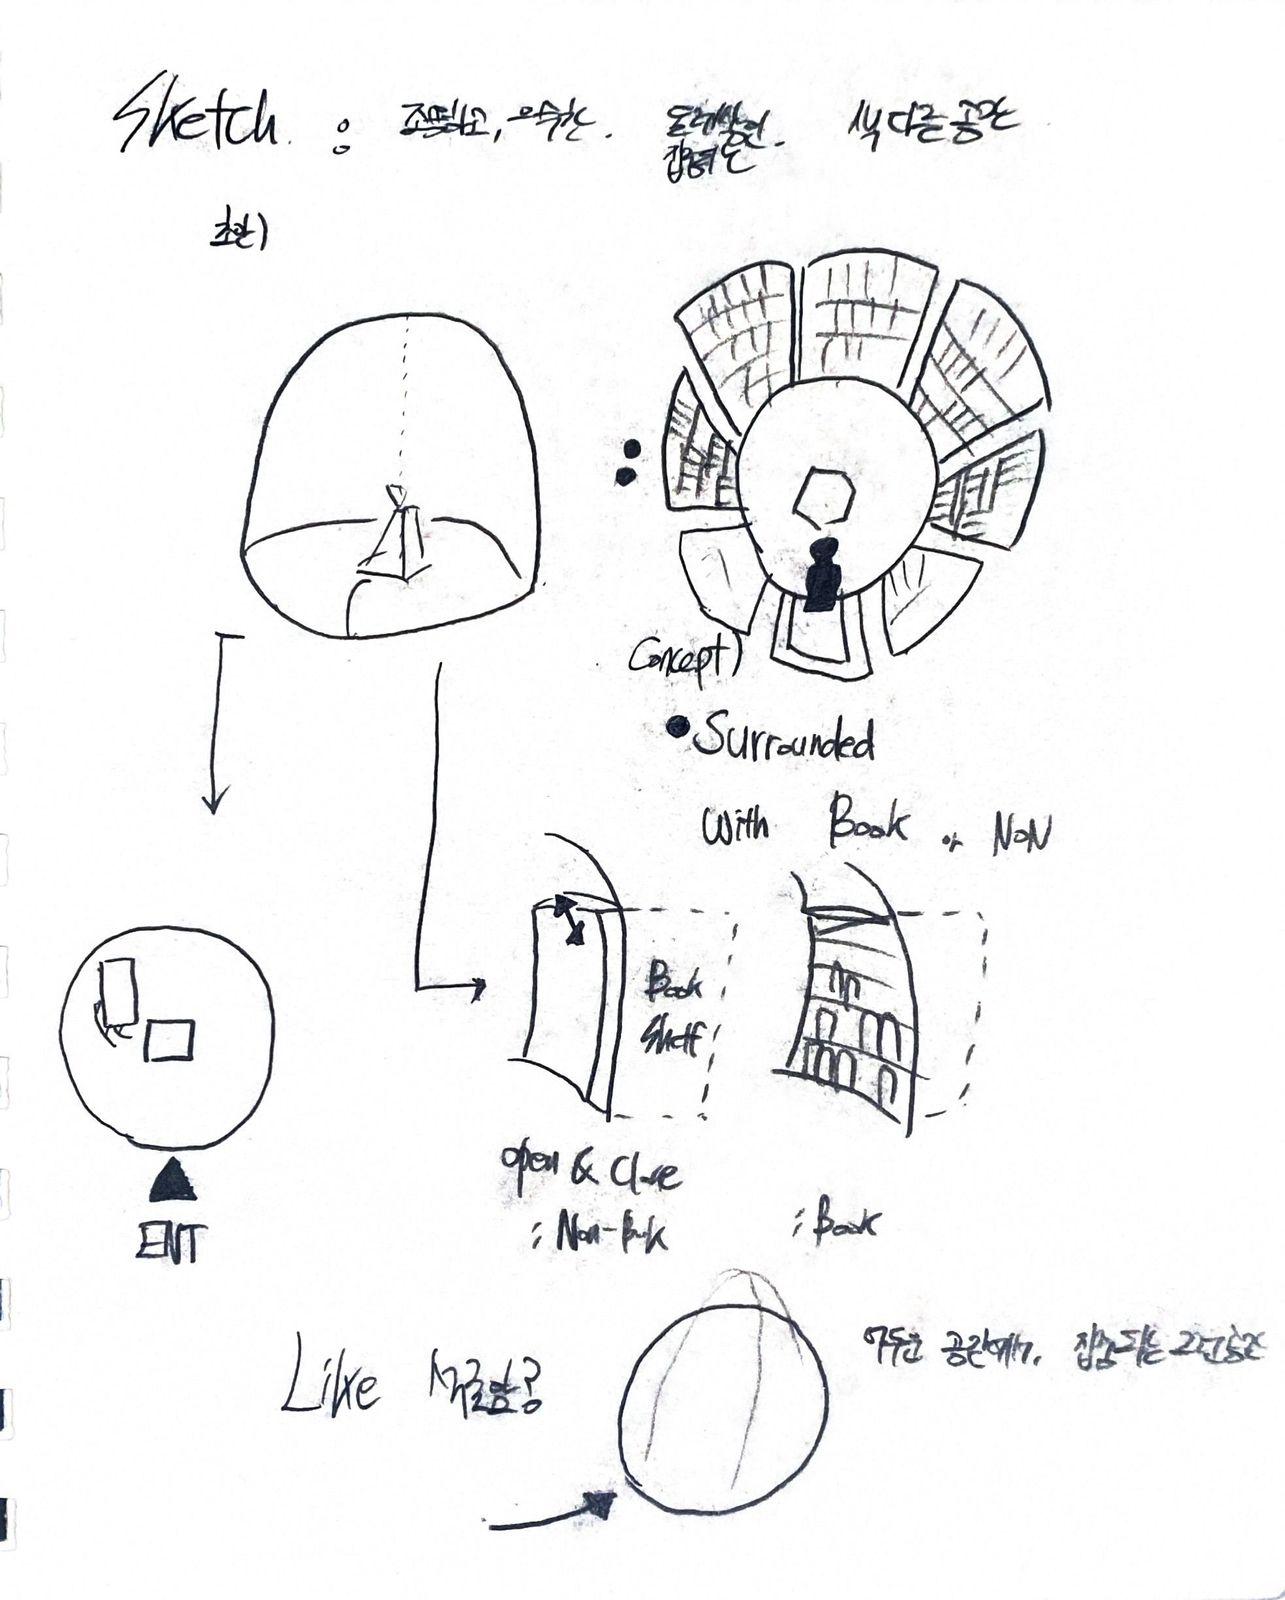 Sketch : 조명하고, 색다른 공간
초안)
Concept)
Surrounded
With Book or NoN
Book
Shelf
open & Close
: Non-Book
: Book
ENT
Like
어두운 공간에서, 집중되는